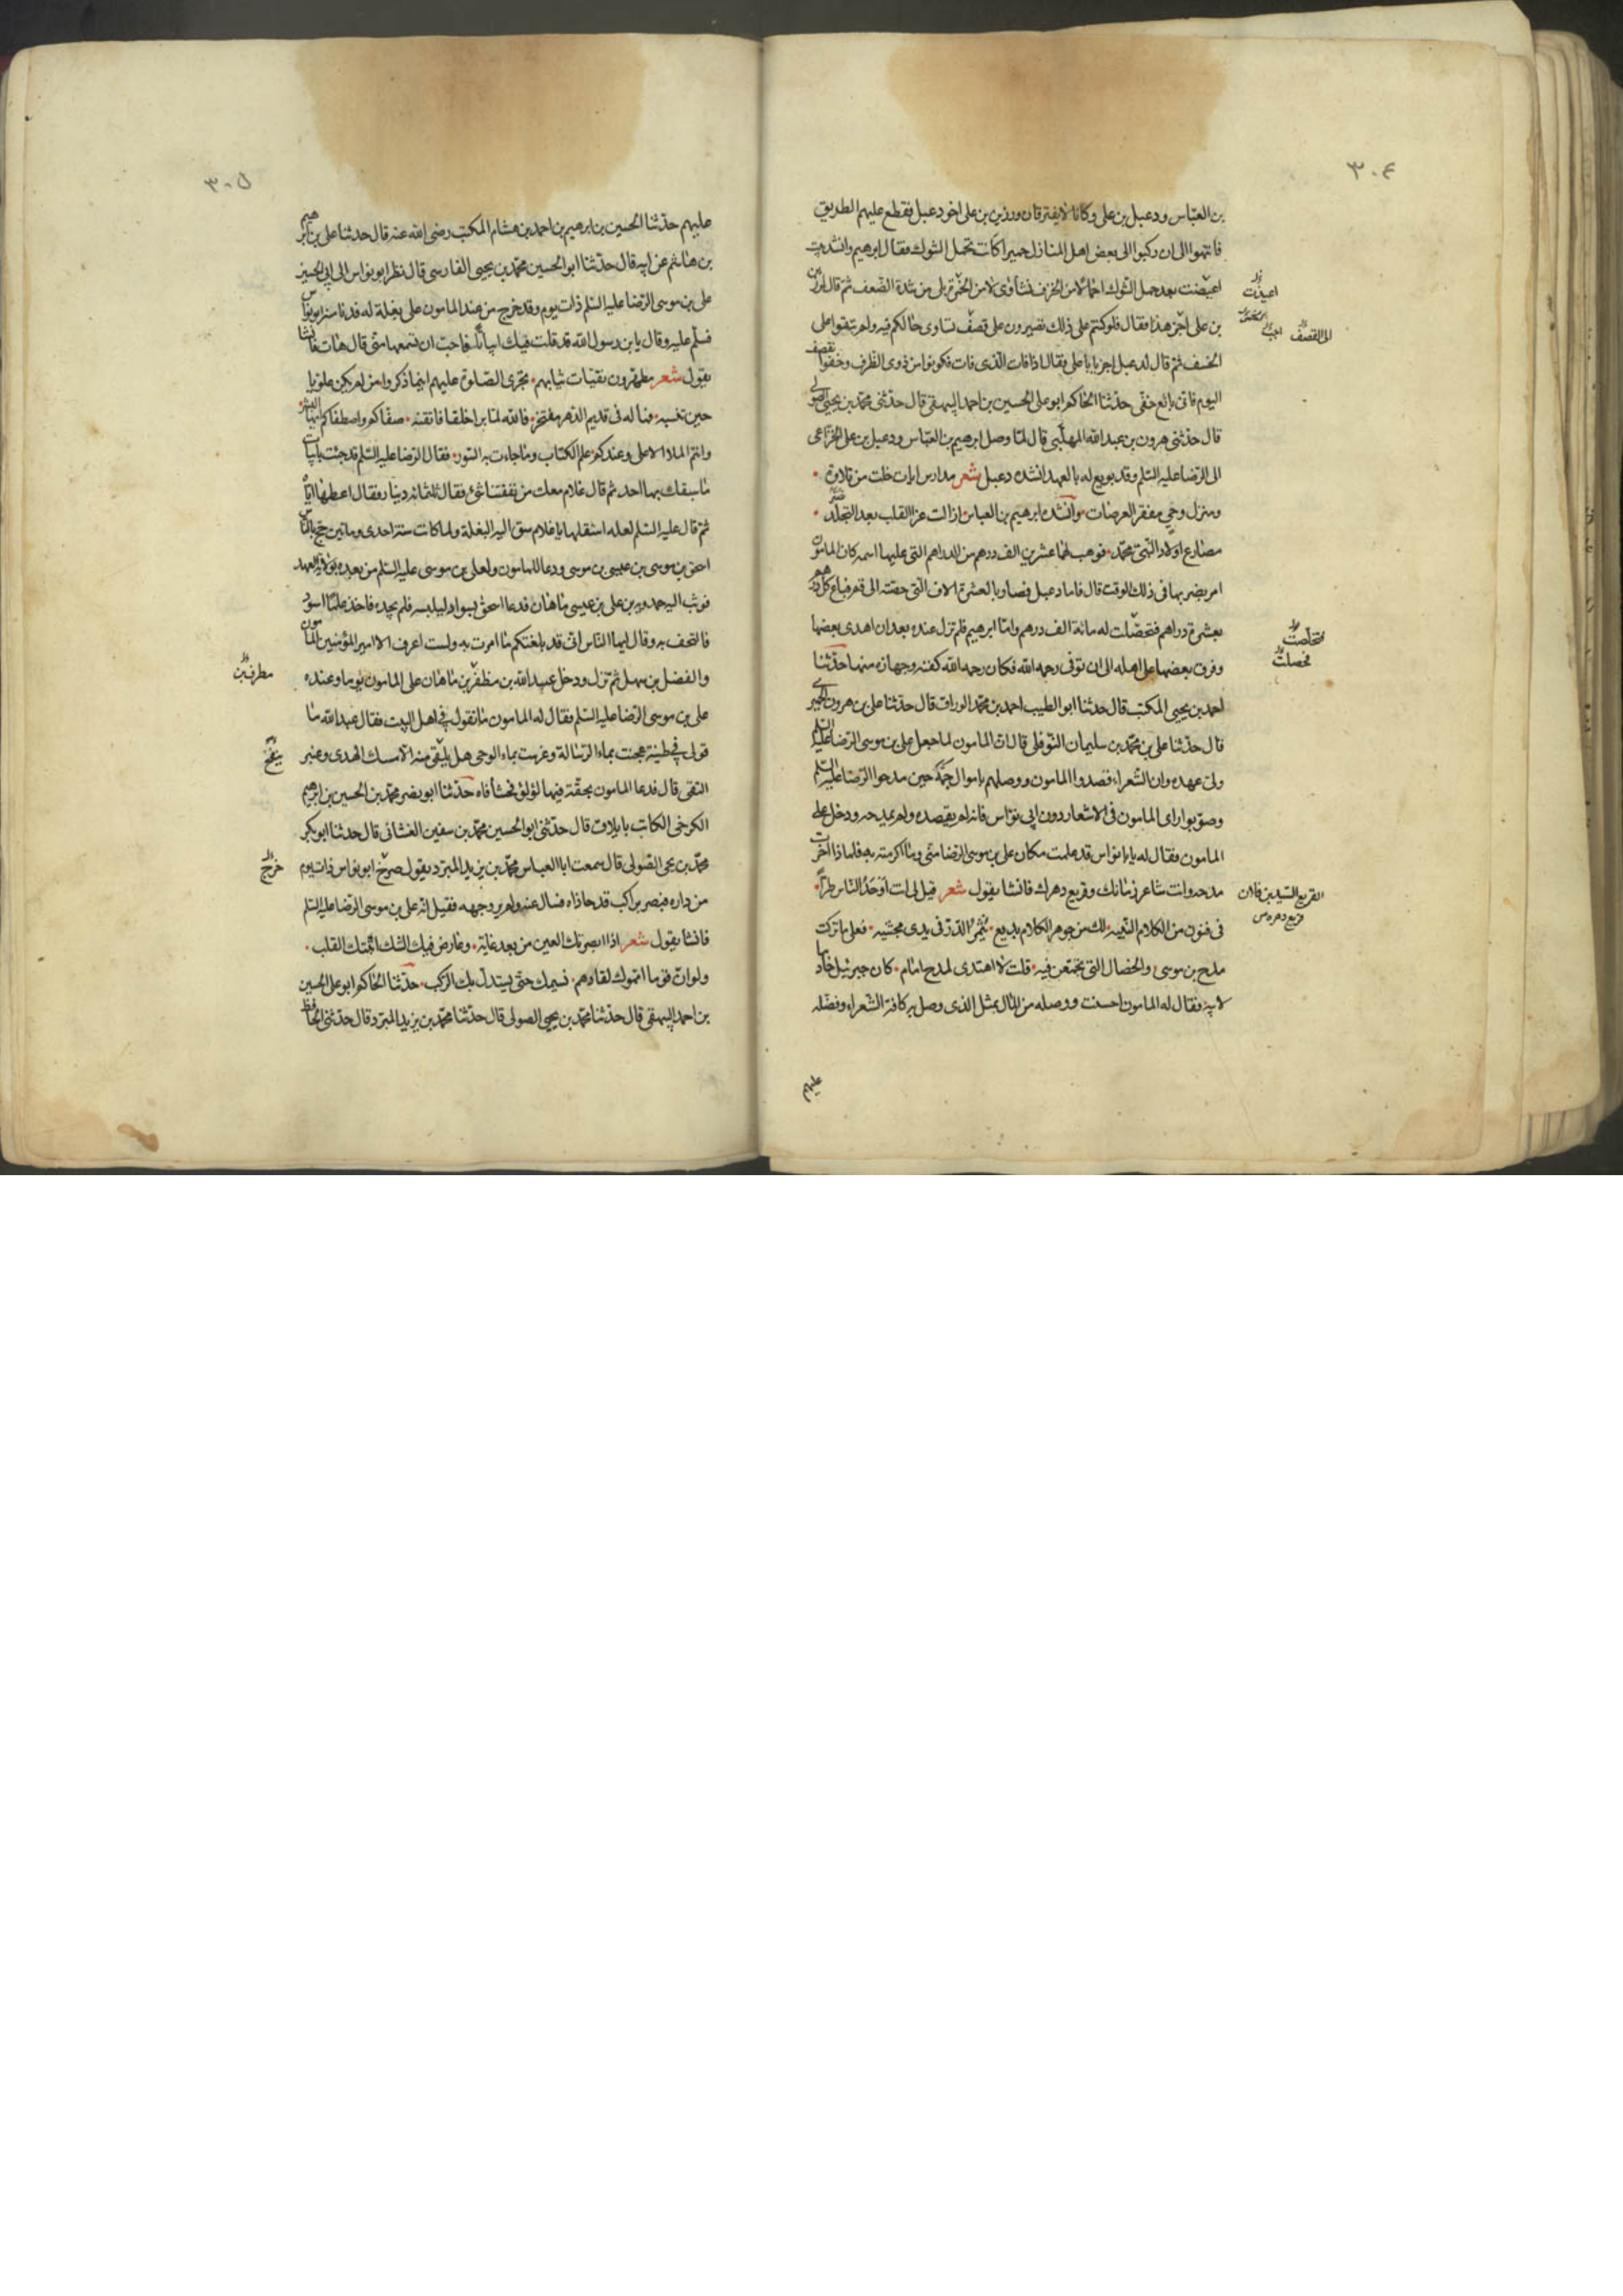 ٣٠٤
بن العباس ودعبل بن علی وكانا لا يفترقان ورزين بن علی اخو دعبل فقطع عليهم الطريق
فانتهوا الی ان ركبوا الی بعض اهل المنازل حميرا كانت تحمل الشوك فقال ابرهيم وانشدت
اعيضت بعد حمل الشوك احمالا من الخزف نشاوی لا من الخمرة بلی من شدة الضعف ثم قال لرزين
بن علی اجز هذا فقال فلوكنتم علی ذلك تصيرون علی قصف تساوی حالكم فيه ولم تبقوا علی
الخسف ثم قال لدعبل اجز يا با علی فقال اذا فات الذی فات فكونوا من ذوی الظرف وخفوا نقصف
اليوم فانی بائع خفی حدثنا الحاكم ابو علی الحسين بن احمد البيهقی قال حدثنی محمد بن يحيی الصولی
قال حدثنی هرون بن عبد الله المهلبی قال لما وصل ابرهيم بن العباس ودعبل بن علی الخزاعی
الی الرضا عليه السلم وقد بويع له بالعهد انشده دعبل شعر مدارس ايات خلت من تلاوة
ومنزل وحی مقفر العرصات وانشده ابرهيم بن العباس ازالت عزا القلب بعد التجلد
مصارع اولاد النبی محمد فوهب لهما عشرين الف درهم من الدراهم التی عليها اسمه كان المامون
امر بضربها فی ذلك الوقت قال فاما دعبل فصار بالعشرة الاف التی حصته الی قم فباع كل درهم
بعشرة دراهم فتحصلت له مائة الف درهم واما ابرهيم فلم تزل عنده بعد ان اهدی بعضها
وفرق بعضها علی اهله الی ان توفی رحمه الله فكان رحمه الله كفنه وجهازه منها حدثنا
احمد بن يحيی المكتب قال حدثنا ابو الطيب احمد بن محمد الوراق قال حدثنا علی بن هرون الحميری
قال حدثنا علی بن محمد بن سليمان النوفلی قال ان المامون لما جعل علی بن موسی الرضا عليه السلم
ولی عهده وان الشعراء قصدوا المامون ووصلهم باموال جمة حين مدحوا الرضا عليه السلم
وصوبوا رای المامون فی الاشعار دون ابی نواس فانه لم يقصده ولم يمدحه ودخل علی
المامون فقال له يا با نواس قد علمت مكان علی بن موسی الرضا منی وما اكرمته به فلماذا اخرت
مدحه وانت شاعر زمانك وقريع دهرك فانشا يقول شعر قيل لی انت اوحد الناس طرا
فی فنون من الكلام النبيه لك من جوهر الكلام بديع يثمر الدر فی يدی مجتنيه فعلی ما تركت
مدح بن موسی والخصال التی تجمعن فيه قلت لا اهتدی لمدح امام كان جبرئيل خادما
لابيه فقال له المامون احسنت ووصله من المال بمثل الذی وصل به كافة الشعراء وفضله
عليهم
اعيدت
الی القصف
فتخلصت
فحصلت
القريع السيد بن فلان
قريع دهره ص
٣٠٥
عليهم حدثنا الحسين بن ابرهيم بن احمد بن هشام المكتب رضی الله عنه قال حدثنا علی بن ابرهيم
بن هاشم عن ابيه قال حدثنا ابو الحسين محمد بن يحيی الفارسی قال نظر ابو نواس الی ابی الحسن
علی بن موسی الرضا عليه السلم ذات يوم وقد خرج من عند المامون علی بغلة له فدنا منه ابو نواس
فسلم عليه وقال يا بن رسول الله قد قلت فيك ابياتا فاحب ان تسمعها منی قال هات فانشا
يقول شعر مطهرون نقيات ثيابهم تجری الصلوة عليهم اينما ذكروا من لم يكن علويا
حين تنسبه فما له فی قديم الدهر مفتخر فالله لما برا خلقا فاتقنه صفاكم واصطفاكم ايها البشر
وانتم الملا الاعلی وعندكم علم الكتاب وما جاءت به السور فقال الرضا عليه السلم قد جئت بابيات
ما سبقك بها احد ثم قال يا غلام معك من نفقتنا شئ فقال ثلثمائة دينار فقال اعطها اياه
ثم قال عليه السلم لعله استقلها يا غلام سق اليه البغلة ولما كانت سنة احدی ومائتين حج بالناس
اسحق بن موسی بن عيسی بن موسی ودعا للمامون ولعلی بن موسی عليه السلم من بعده بولاية العهد
فوثب اليه حمدويه بن علی بن عيسی ماهان فدعا اسحق بسواد ليلبسه فلم يجده فاخذ علما اسود
فالتحف به وقال ايها الناس انی قد بلغتكم ما امرت به ولست اعرف الا امير المؤمنين المامون
والفضل بن سهل ثم نزل ودخل عبد الله بن مظفر بن ماهان علی المامون يوما وعنده
علی بن موسی الرضا عليه السلم فقال له المامون ما تقول فی اهل البيت فقال عبد الله ما
قولی فی طينة عجنت بماء الرسالة وغرست بماء الوحی هل يلتقی منه الا مسك الهدی وعنبر
التقی قال فدعا المامون بحقة فيها لؤلؤ فحشا فاه حدثنا ابو نصر محمد بن الحسين بن ابرهيم
الكرخی الكاتب بايلاق قال حدثنی ابو الحسين محمد بن سفين الغسانی قال حدثنا ابو بكر
محمد بن يحی الصولی قال سمعت ابا العباس محمد بن يزيد المبرد يقول خرج ابو نواس ذات يوم
من داره فبصر براكب قد حاذاه فسال عنه ولم ير وجهه فقيل انه علی بن موسی الرضا عليه السلم
فانشا يقول شعر اذا ابصرتك العين من بعد غاية وعارض فيك الشك اثبتك القلب
ولو ان قوما امموك لقادهم نسيمك حتی يستدل بك الركب حدثنا الحاكم ابو علی الحسين
بن احمد البيهقی قال حدثنا محمد بن يحيی الصولی قال حدثنا محمد بن يزيد المبرد قال حدثنی الحافظ
مطرف بن
خرج